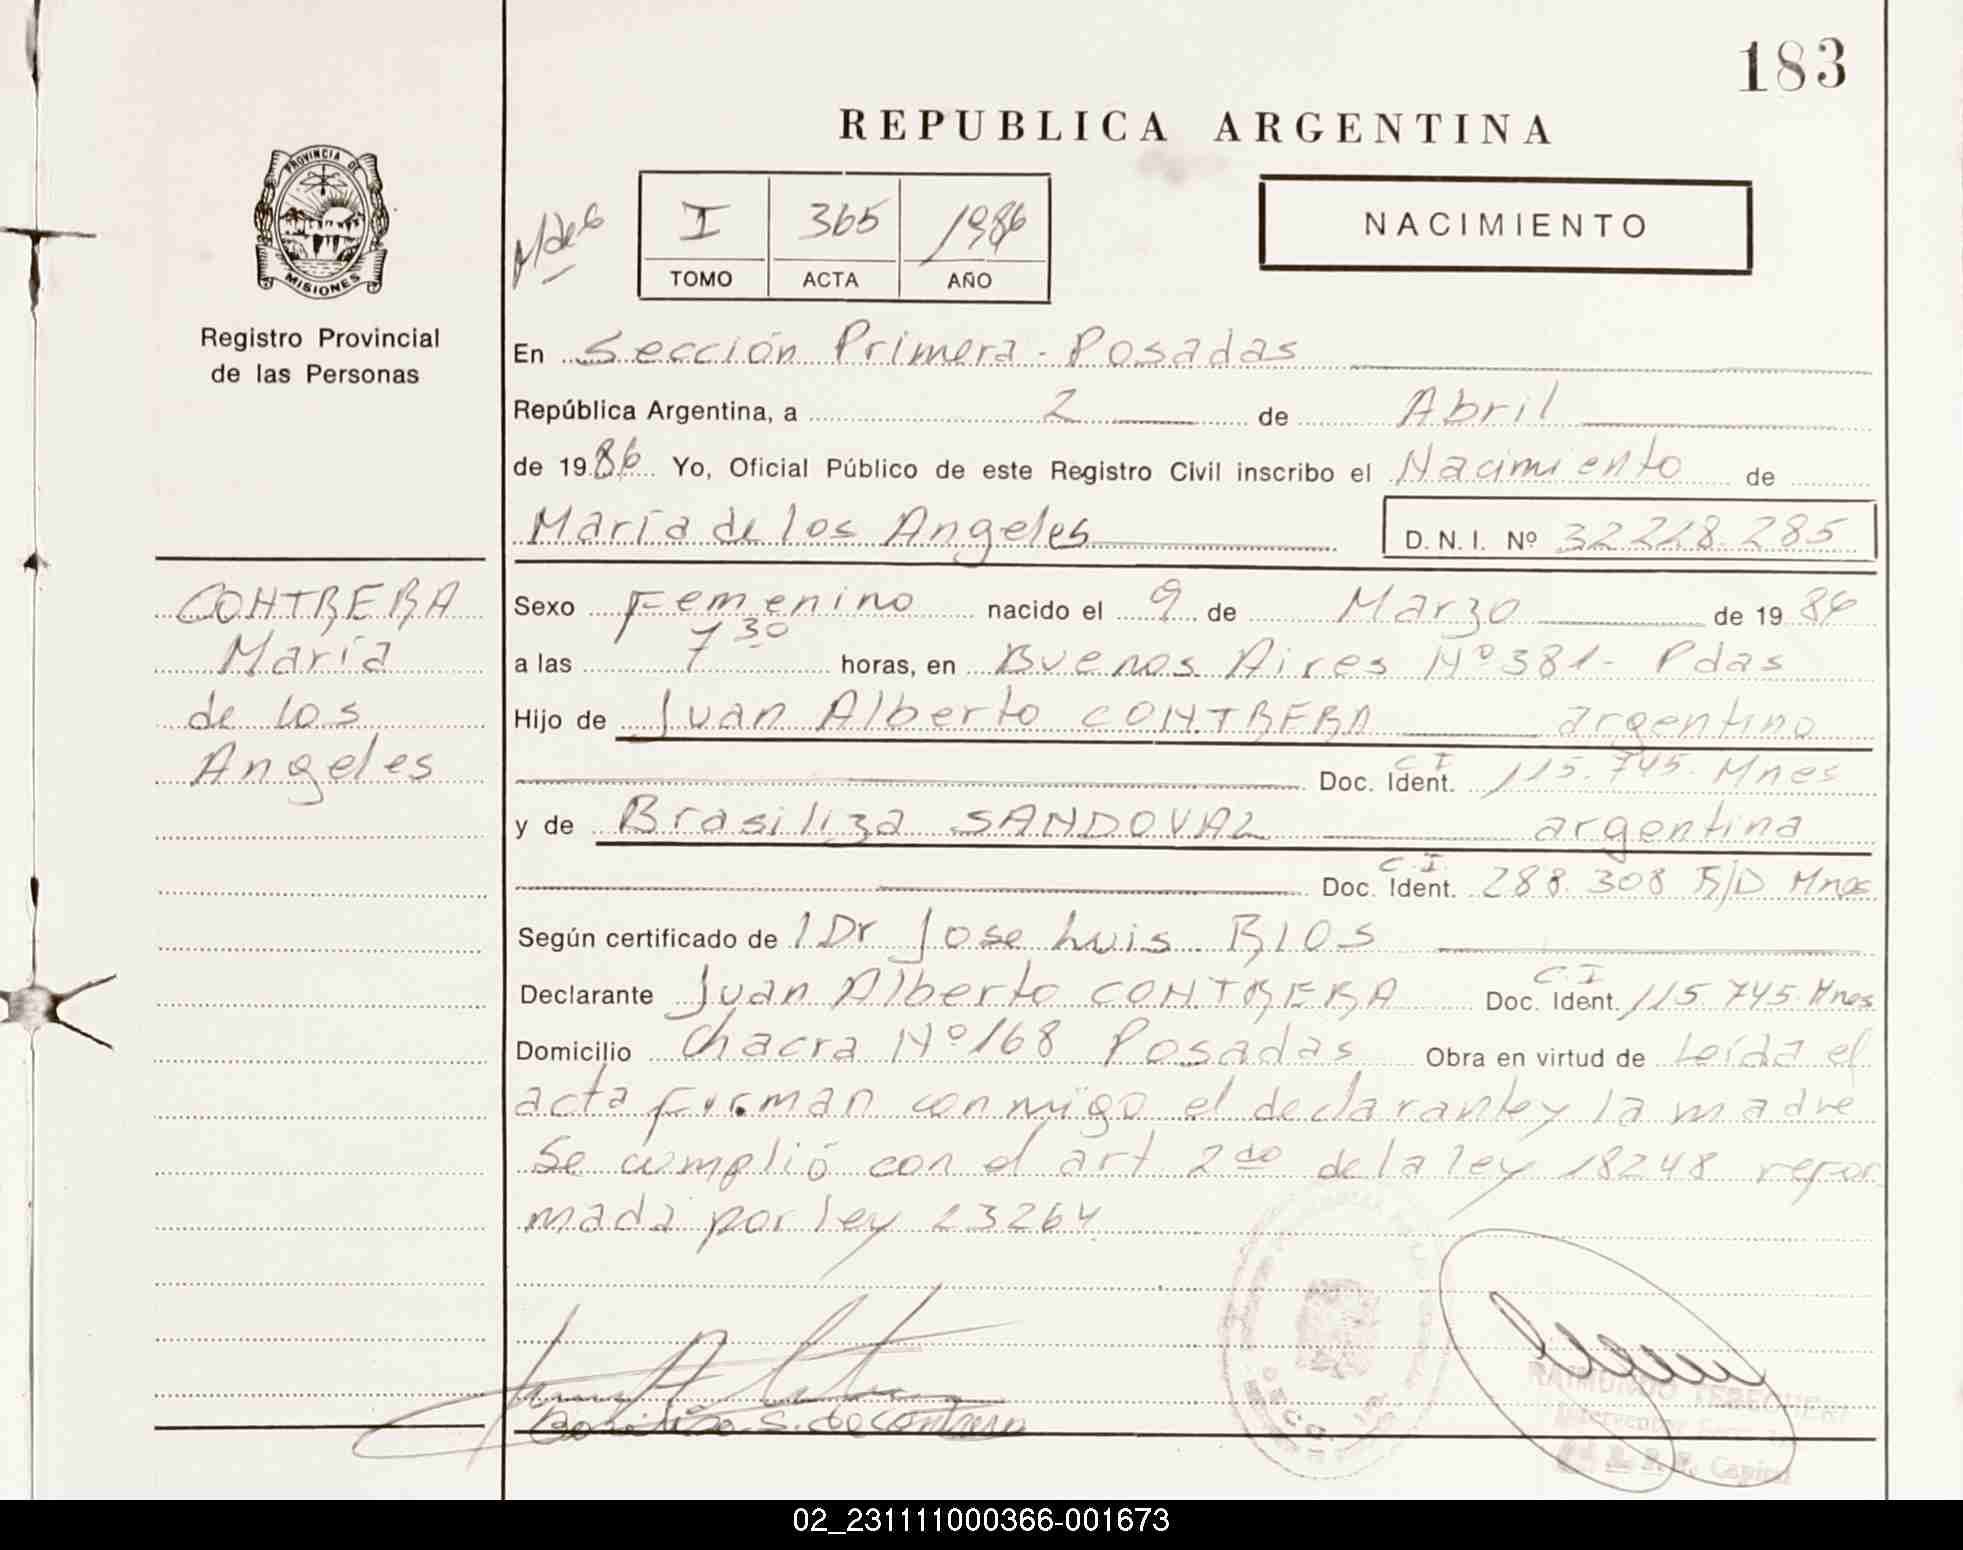 183
REPUBLICA ARGENTINA
PROVINCIA DE
MISIONES
Registro Provincial
de las Personas
I 365 1986
TOMO ACTA AÑO
NACIMIENTO
En Sección Primera - Posadas
República Argentina, a 2 de Abril
de 1986 Yo, Oficial Público de este Registro Civil inscribo el Nacimiento de
María de los Angeles D.N.I. Nº 32228.285
CONTRERA
María
de los
Angeles
Sexo Femenino nacido el 9 de Marzo de 1986
a las 7 30 horas, en Buenos Aires Nº 381- Pdas
Hijo de Juan Alberto CONTRERA argentino
Doc. Ident. C I 115.745. Mnes
y de Brasiliza SANDOVAL argentina
Doc. Ident. C.I. 288.308 R/D Mnes
Según certificado de 1 Dr Jose Luis RIOS
Declarante Juan Alberto CONTRERA Doc. Ident. C.I 115.745. Mnes
Domicilio Chacra Nº 168 Posadas Obra en virtud de Leída el
acta firman conmigo el declarante y la madre
Se cumplió con el art 2do de la ley 18248 refor
mada por ley 23264
S. de Contrera
RAIMUNDO
Capital
02_231111000366-001673